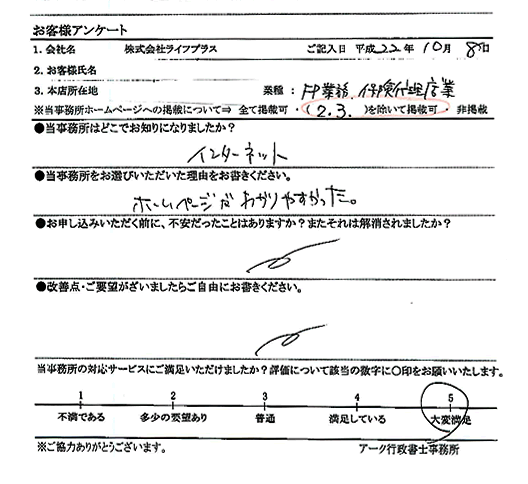 お客様アンケート
1. 会社名 株式会社ライフプラス ご記入日 平成22年10月8日
2. お客様氏名
3. 本店所在地 業種: FP業務、保険代理店業
※当事務所ホームページへの掲載について⇒ 全て掲載可・(2.3.)を除いて掲載可・非掲載
●当事務所はどこでお知りになりましたか?
インターネット
●当事務所をお選びいただいた理由をお書きください。
ホームページがわかりやすかった。
●お申し込みいただく前に、不安だったことはありますか?またそれは解消されましたか?
●改善点・ご要望がざいましたらご自由にお書きください。
当事務所の対応サービスにご満足いただけましたか?評価について該当の数字に〇印をお願いいたします。
1 2 3 4 5
不満である 多少の要望あり 普通 満足している 大変満足
※ご協力ありがとうございます。 アーク行政書士事務所